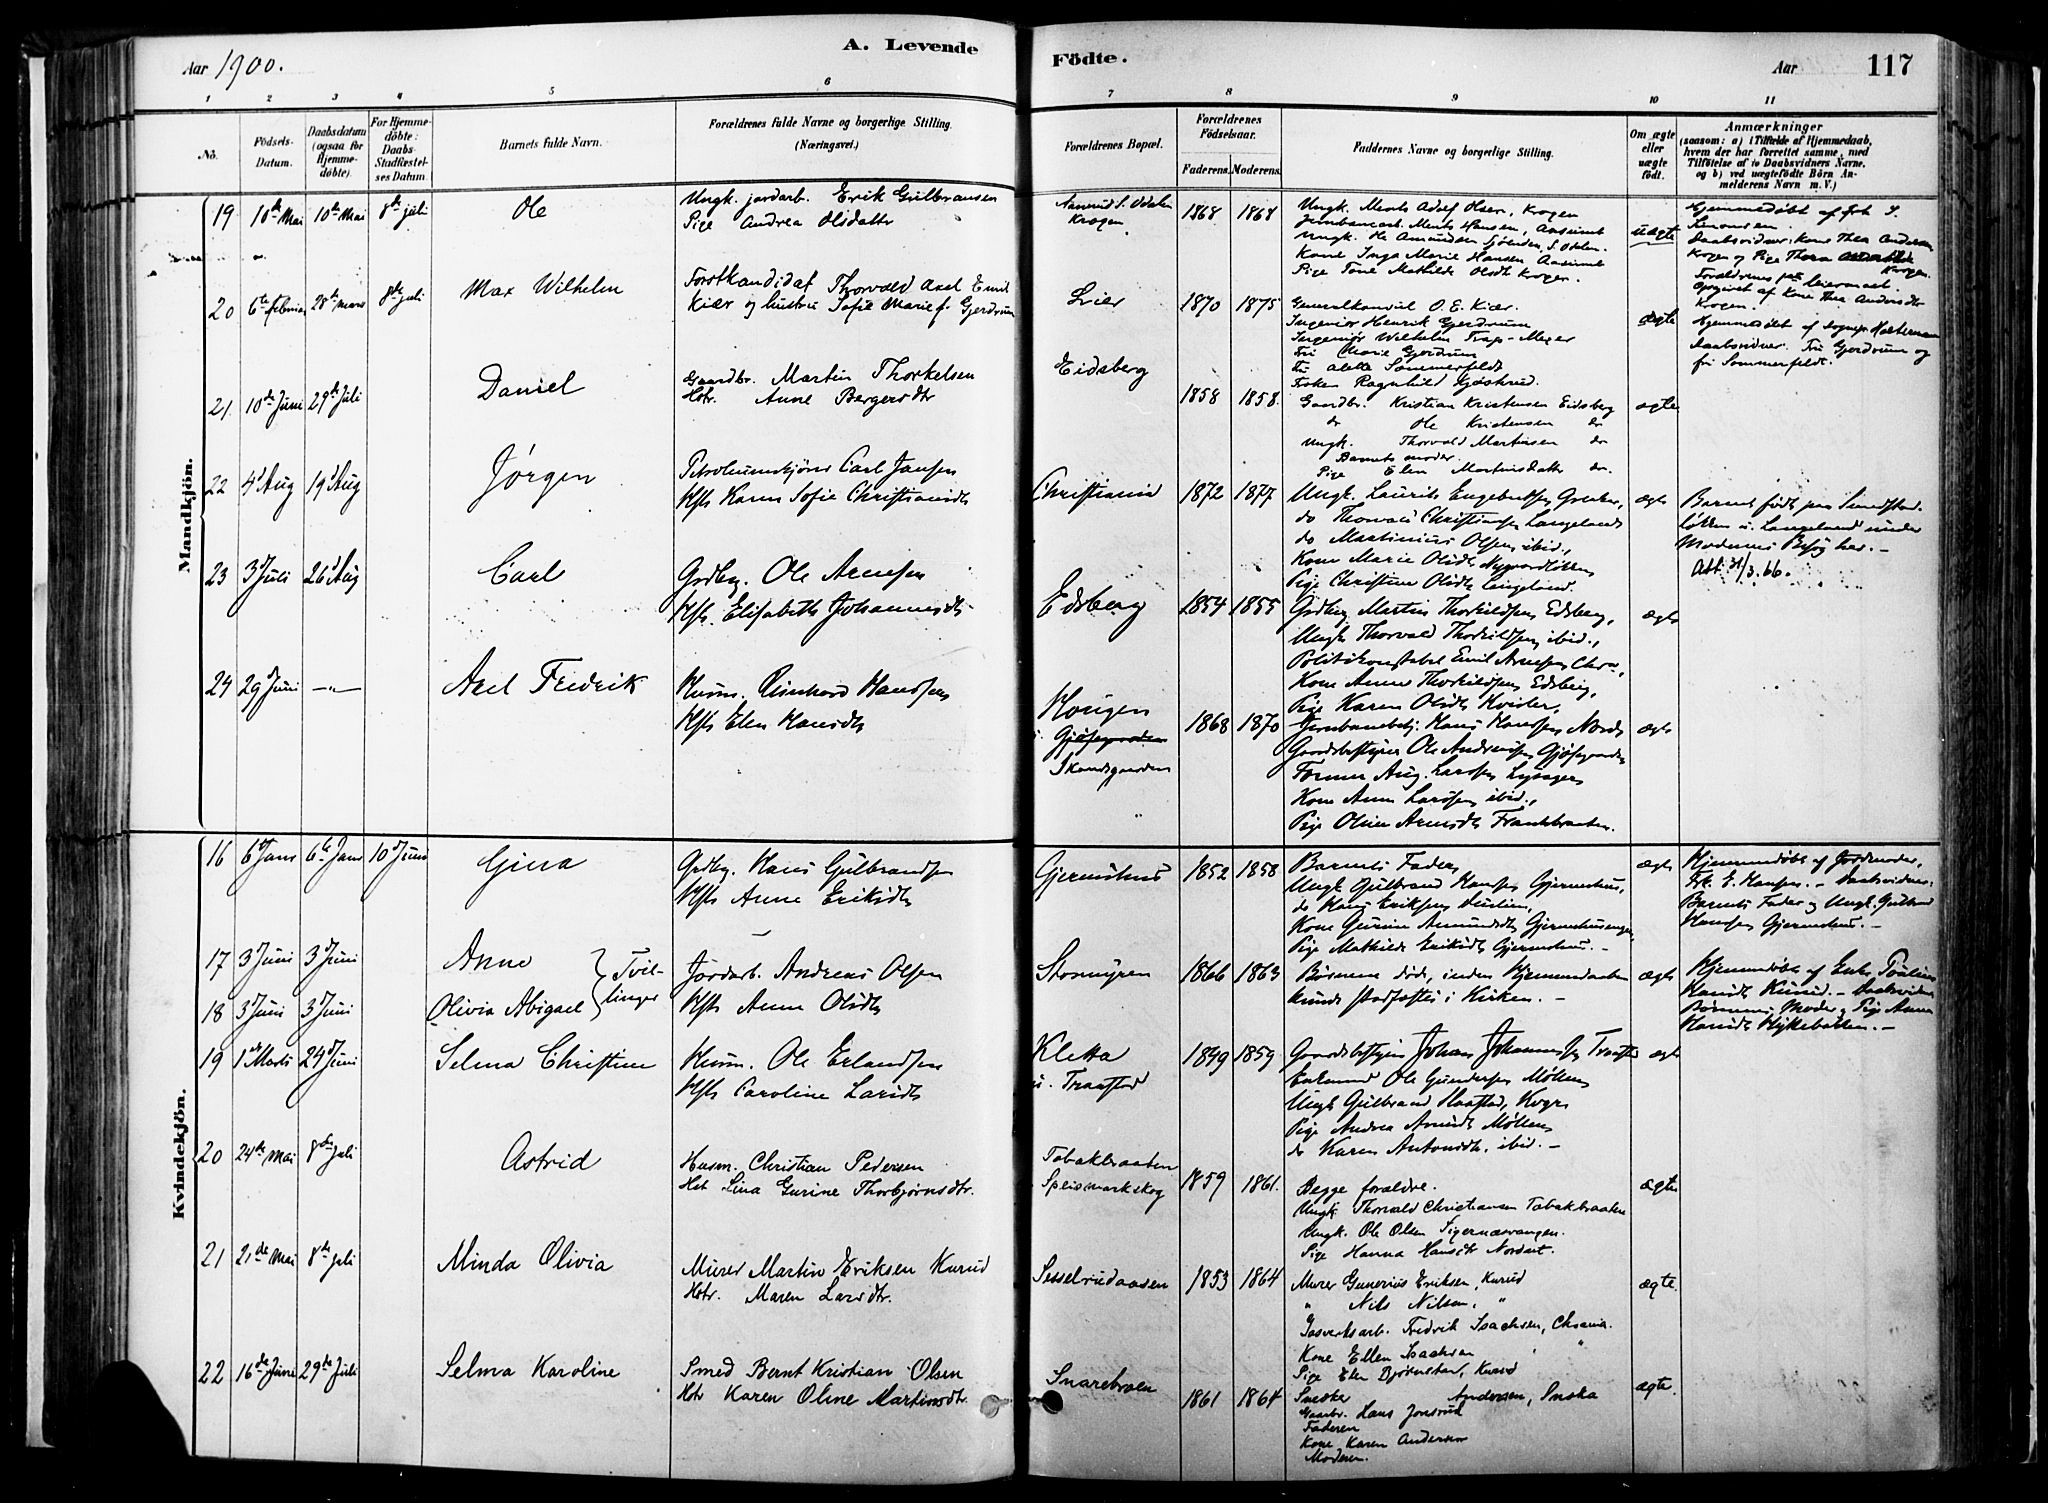 Aar 1900.
A. Levende
Födte.
Aar
117
1 2 3 4 5 6 7 8 9 10 11
No.
Födsels-Datum.
Daabsdatum (ogsaa for Hjemme-döbte).
For Hjemme-döbte: Daabs-Stadfæstel-ses Datum.
Barnets fulde Navn.
Forældrenes fulde Navne og borgerlige Stilling. (Næringsvei.)
Forældrenes Bopæl.
Forældrenes Födselsaar.
Faderens. Moderens.
Faddernes Navne og borgerlige Stilling.
Om ægte eller uægte födt.
Anmærkninger
(saasom: a) i Tilfælde af Hjemmedaab, hvem der har forrettet samme, med Tilföielse af to Daabsvidners Navne, og b) ved uægtefödte Börn Anmelderens Navn m. V.)
Mandkjön.
19 10de Mai 10de Mai 8de juli Ole
Ungk. jordarb. Erik Gulbransen
Pige Andrea Olsdatter
Krogen
1868 1868
Ungk. Ments Adolf Olsen, Krogen
Jernbanearb. Ments Hansen, Aaserud
Ungk. Ole Amundsen Sjøenden, S. Odalen.
Kone Inga Marie Hansen Aaserud
Pige Tone Mathilde Olsdt Krogen.
uægte
Hjemmedøbt af
Simonsen.
Daabsvidner: Kone Thea Andersen
Krogen og Pige Thora
Krogen.
Forældrenes
Opgivet af Kone Thea Andersdtr
Krogen.
20 6te februar 28de mars 8de juli Max Wilhelm
Forstkandidat Thorvald Axel Emil
Kiær og hustru Sofie Marie f. Gjerdrum
Lier
1870 1875
Generalkonsul O. E. Kiær.
Ingeniør Henrik Gjerdrum
Ingeniør Wilhelm Trap-Meyer
Fru Marie Gjerdrum
Fru Sommerfeldt
Frøken Ragnhild
ægte
Hjemmedøbt af Sognepr.
Daabsvidner. Fru Gjerdrum og
fru Sommerfeldt.
21. 10de Juni 29de Juli Daniel
Gaardbr. Martin Thorkelsen
Hstr. Anne Bergersdtr
Eidsberg
1858 1858.
Gaardbr. Kristian Kristensen Eidsberg
dr Ole Kristensen dr
Ungk. Thorvald Martinsen dr
Barnets moder.
Pige Elen Martinsdatter dr.
ægte
22 4d Aug 19d Aug Jørgen
Petroleumskjører Carl Jansen
Hst. Karen Sofie Christiansdt
Christiania
1872 1877
Ungk. Laurits Engebretsen
do Thorvald Christiansen Langeland
do Martinius Olsen ibid.,
Kone Marie Olsdt
Pige Christine Olsdt Langeland.
ægte
Barnet født paa
løkken u. Langeland under
Moderens Besøg her. –
Att. 31/3. 66.
23 3d Juli 26d Aug Carl
Grdbr. Ole Arnesen
Hst. Elisabeth Johannesdt
Edsberg
1854 1855
Grdbr. Martin Thorkildsen Edsberg,
Ungk Thorvald Thorkildsen ibid.,
Politikonstabel Emil Arnesen Chra,
Kone Anne Thorkildsen Edsberg,
Pige Karen Olsdt Kvisler.
ægte
24 29d Juni –„– Axel Fredrik
Husm. Reinhard Hansen
Hst Elen Hansdt
Hougen
u. Gjøsegaarden
Skandsgaarden
1868 1870
Jernbanebetj. Hans Hansen Nords
Gaardsbestyrer Ole Andreassen Gjøsegaarden
Former Aug. Larssen
Kone Anna Larssen ibid.,
Pige Oline Arnesdt Frankbraaten.
ægte
Kvindekjön.
16 6d Jan 6te Jan 10d Juni Gina
Grdbr. Hans Gulbrandsen
Hst Anne Eriksdt
Gjermshus
1852 1858
Barnets Fader,
Ungk Gulbrand Hansen Gjermshus,
do Hans Eriksen
Kone Gurine Amundsdt Gjermshusengen,
Pige Mathilde Eriksdt Gjermshus. –
ægte
Hjemmedøbt af Jordmoder,
Frk. E. Hansen. – Daabsvidner:
Barnets Fader og Ungk. Gulbrand
Hansen Gjermshus. –
17 3d Juni 3d Juni Anne
18 3d Juni 3d Juni Olivia Abigael
Tvil-
linger
Jordarb. Andreas Olsen
Hst Anne Olsdt
Stormyren
1866 1863
Børnene døde, inden Hjemmedaaben
kunde stadfæstes i Kirken. –
ægte
Hjemmedøbt af Enke Pauline
Hansdt Kurud. – Daabsvidner
Børnenes Moder og Pige Anna
Hansdt –
19 1de Marts 24d Juni Selma Christine
Husm. Ole Erlandsen
Hst Caroline Larsdt
Kletta
u. Traastad
1849 1859
Gaardsbestyrer Johan Johannessen Traastad
Enkemand Ole Gundersen Møllen
Ungk Gulbrand Haastad,
Pige Andrea Møllen
do Karen Antonsdt, ibid. –
ægte
20 24de Mai 8de juli Astrid
Husm. Christian Pedersen
Hst Lina Gurine Thorbjørnsdtr.
Tabakbraaten
Speismarkskog
1859 1861.
Begge forældre.
Ungk. Thorvald Christiansen Tabakbraaten
Ungk. Ole Olsen Sigernæsvangen.
Pige Hanna Hansdtr
ægte
21 21de Mai 8de juli Minda Olivia
Murer Martin Eriksen Kurud
Hstr. Maren Larsdtr.
Sesselrudaasen
1853 1864
Murer Gunerius Eriksen, Kurud
" Nils Nilsen, "
Gasverksarb. Fredrik Isachsen, Chrania.
Kone Ellen Isachsen "
Pige Elen Bjørnstad, Kurud
ægte.
22 16de Juni 29de Juli Selma Karoline
Smed Bernt Kristian Olsen
Hstr Karen Oline Martinsdtr.
Snarebroen
1861 1864
Snedker Andersen,
Gaardbr. Hans Jonsrud
Faderen
Kone Karen Andersen
Moderen.
ægte.